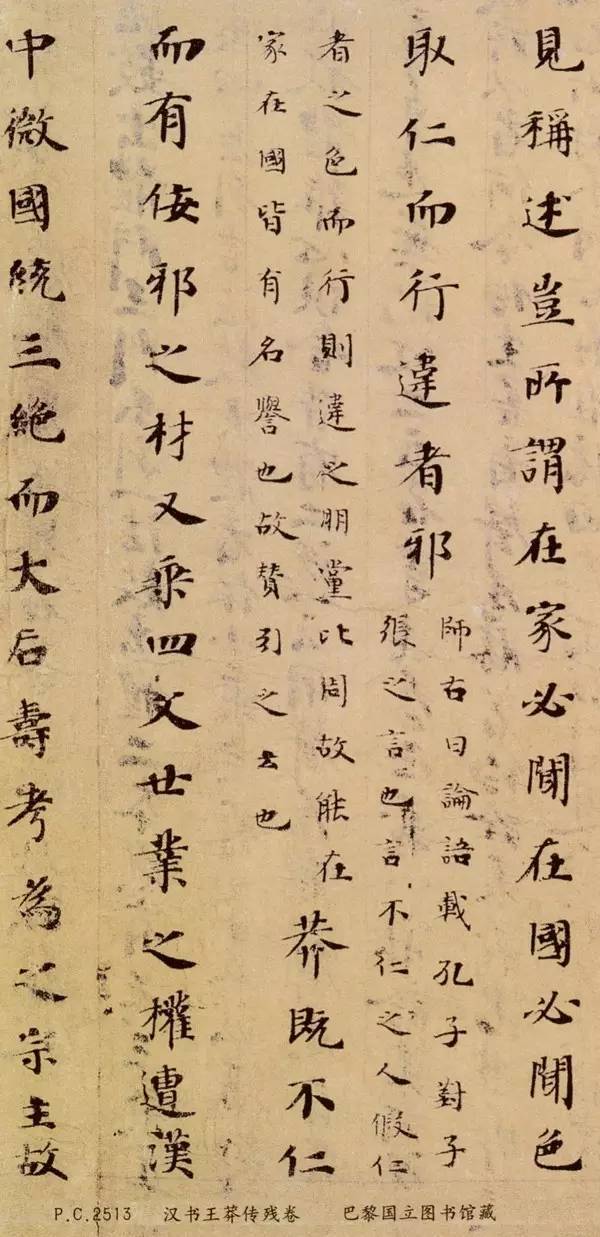 見稱述豈所謂在家必聞在國必聞色
取仁而行違者邪
師古曰論語載孔子對子
張之言也言不仁之人假仁
者之色而行則違之朋黨比周故能在
家在國皆有名譽也故贊引之云也
莽既不仁
而有佞邪之材又乘四父世業之權遭漢
中微國統三絕而大后壽考為之宗主故
P.C.2513 汉书王莽传残卷 巴黎国立图书馆藏